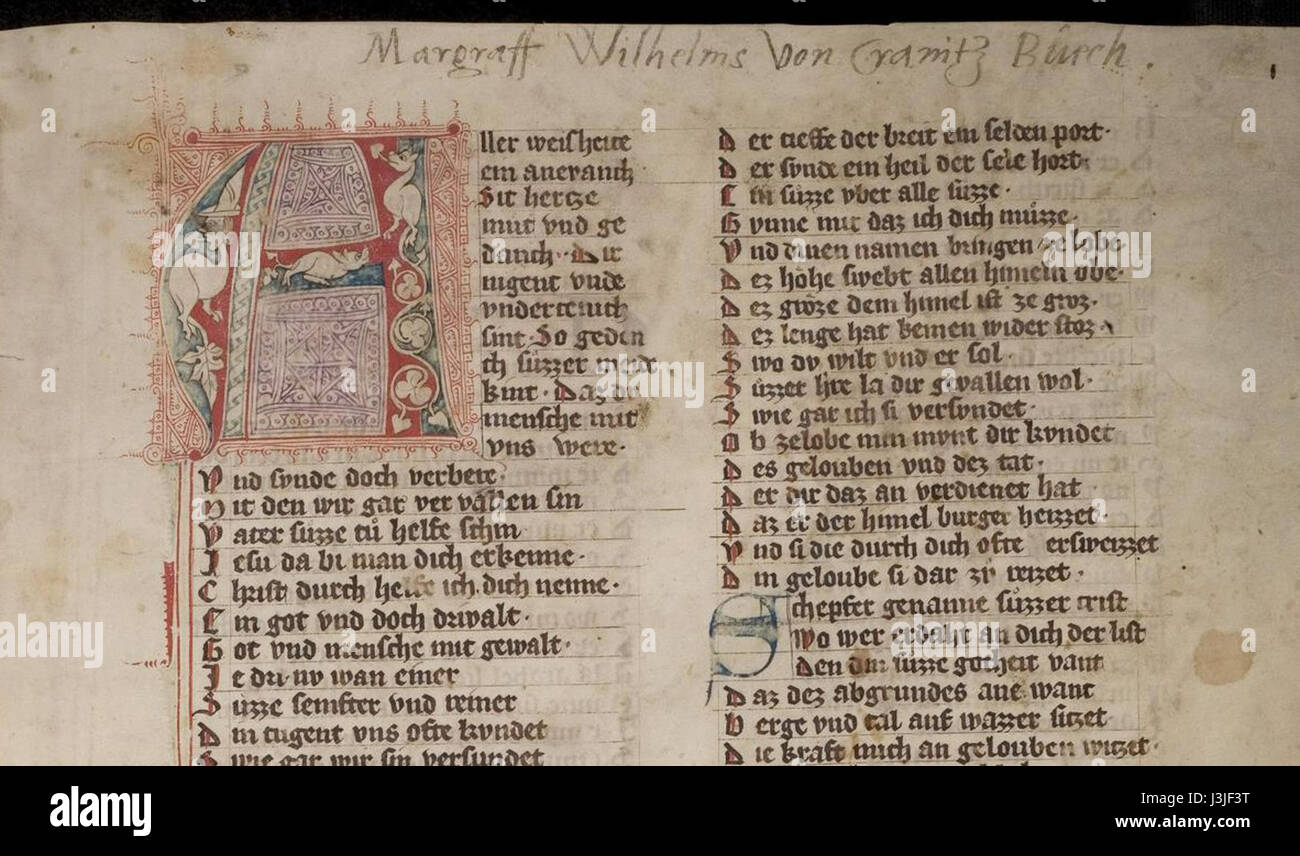 Margraff Wilhelms Von Cranitz Buech.
A
ller weisheite
ein anevanch
Sit hertze
mut vnd ge
danch · Dir
tugent vnde
vndertenich
sint · So geden
ch suzzer meit
kint · Daz du
mensche mit
vns were ·
Vnd synde doch verbere ·
Mit den wir gar ver vallen sin
Vater suzze tů helfe schin
Iesu da bi man dich erkenne ·
Christ durch helfe ich dich nenne ·
Ein got vnd doch drivalt ·
Got vnd mensche mit gewalt ·
Ie dri nv wan einer
Suzze semfter vnd reiner
Din tugent vns ofte kvndet
Swie gar wir sin versundet
Der tieffe der breit ein selden port ·
Der synde ein heil der sele hort ·
Ein suzze vber alle suzze ·
Gvnne mir daz ich dich můzze ·
Vnd dinen namen bringen ze lobe
Dez hohe swebt allen himeln obe ·
Dez grôze dem himel ist ze groz ·
Dez lenge hat keinen wider stoz
Swo dv wilt vnd er sol ·
Sůzzer hre la dir gevallen wol ·
Swie gar ich si versvndet ·
Ob zelobe min mvnt dir kvndet
Des gelouben vnd dez tat ·
Der dir daz an verdienet hat
Daz er der himel burger heizzet ·
Vnd si die durch dich ofte ersweizzet
Din geloube si dar zů reizet ·
Schepfer genanne sůzzer crist
Wo wer erdaht an dich der list
Den din suzze gotheit vant
Daz dez abgrundes ane want
Berge vnd tal auf wazzer sitzet
Die kraft mich an gelouben witzet ·
alamy
Image ID: J3JF3T
www.alamy.com